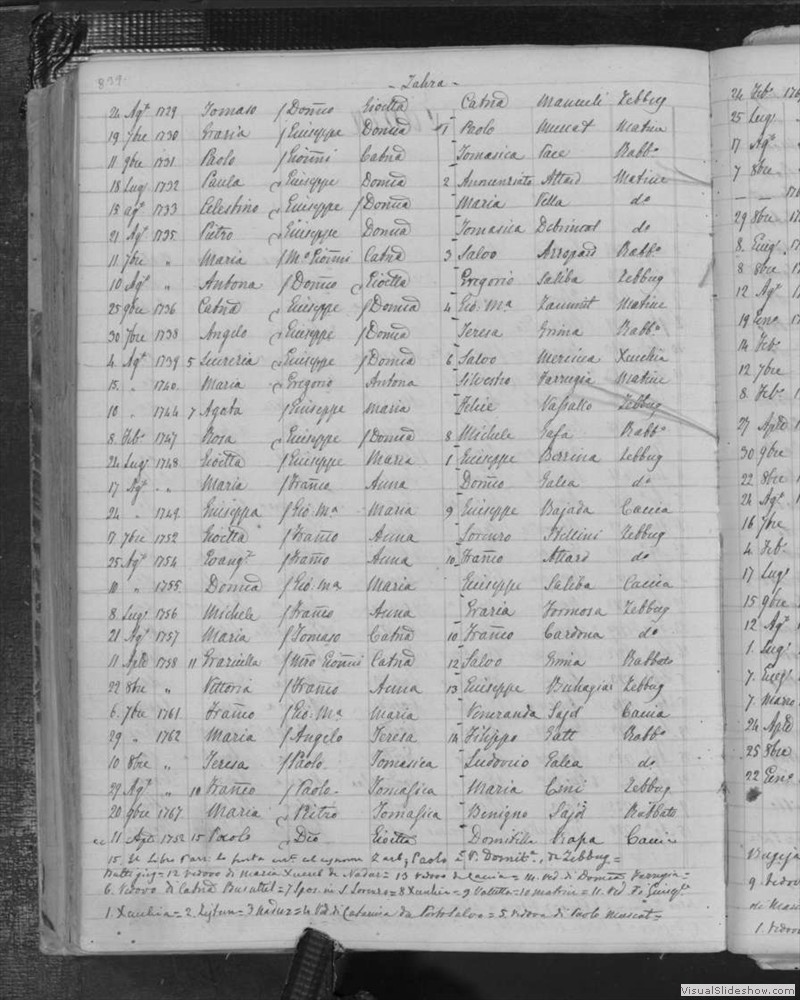 839.
- Zahra -
24 Agto 1729 Tomaso f Domco Gioetta Catna Manueli Zebbug
19 7bre 1730 Grazia f Giuseppe Domca 1 Paolo Muscat Matrice
11 9bre 1731 Paolo f Gioanni Catna Tomasica Pace Rabbo
18 Lugo 1732 Paula Giuseppe Domca 2 Annunziato Attard Matrice
15 ago 1733 Celestino Giuseppe f Domca Maria Vella do
21 Ago 1735 Pietro Giuseppe Domca Tomasica do
11 7bre " Maria f Mo Gioanni Catna 3 Salvo Rabbo
10 Ago " Antona f Domco Gioetta Gregorio Saliba Zebbug
25 9bre 1736 Catna Giuseppe f Domca 4 Gio. Ma Zammit Matrice
30 7bre 1738 Angelo Giuseppe f Domca Teresa Grima Rabbo
4 Ago 1739 5 Lucrezia Giuseppe f Domca 6 Salvo Mercieca Xeuchia
15 " 1740 Maria Gregorio Antona Silvestro Farrugia Matrice
10 " 1744 7 Agata f Giuseppe Maria Felice Vassallo Zebbug
8 Febo 1747 Rosa Giuseppe f Domca 8 Michele Safa Rabbo
24 Lugo 1748 Gioetta f Giuseppe Maria 1 Giuseppe Zebbug
17 Ago " " Maria f Franco Anna Domco Galea do
24 " 1749 Giuseppa f Gio. Ma Maria 9 Giuseppe Bajada Caccia
7 7bre 1752 Gioetta f Franco Anna Lorenzo Stellini Zebbug
25 Ago 1754 f Franco Anna 10 Franco Attard do
10 " 1755 Domca f Gio. Ma Maria Giuseppe Saliba Caccia
8 Lugo 1756 Michele f Franco Anna Grazia Formosa Zebbug
21 Ago 1757 Maria f Tomaso Catna 10 Franco Cardona do
11 Aple 1758 11 Graziulla f Mro Gioanni Catna 12 Salvo Grima Rabbato
22 8bre " Vittoria f Franco Anna 13 Giuseppe Buhagiar Zebbug
6 7bre 1761 Franco f Gio. Ma Maria Veneranda Sajd Caccia
29 " 1762 Maria f Angelo Teresa 14 Filippo Gatt Rabbo
10 8bre " Teresa f Paolo Tomasica Ludovico Galea do
29 Ago " 10 Franco f Paolo Tomasica Maria Cini Zebbug
20 9bre 1767 Maria Pietro Tomasica Benigno Sajd Rabbato
11 Aple 1752 15 Paolo Dco Gioetta Domitilla Rapa Caccia
15. Il Libro Parr. lo porta Paolo Domita, di Zebbug =
12 vedovo di Maria Xuereb di Nadur = 13 vedovo di Caccia = 14. ved. di Domca Farrugia =
6. Vedovo di Catna Busuttil = 7 Spos. in S. Lorenzo = 8 Xeuchia = 9 Valletta = 10 matrice = 11. Ved. di Giuspe
1. Xeuchia = 2. Zejtun = 3 Nadur = 4 Ved. di Catarina da Portosalvo = 5. vedova di Paolo Muscat =
24 Febo
25 Lugo
17 Ago
7 8bre
29 8bre
8. Giugo
8 8bre
12 Ago
19 Geno
14 Febo
12 7bre
8. Febo
27 Aple
30 9bre
22 8bre
24 Ago
16 7bre
4. Febo
17 Lugo
15 9bre
12 Ago
1. Lugo
7. Giugo
7. Marzo
24 Aple
25 8bre
22 Geno
VisualSlideshow.com